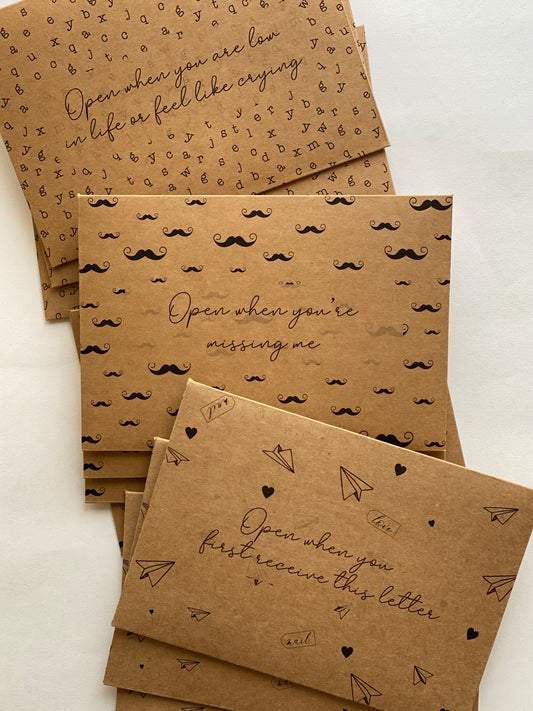 Open when you are low
in life or feel like crying
Open when you're
missing me
Open when you
first receive this letter
mail